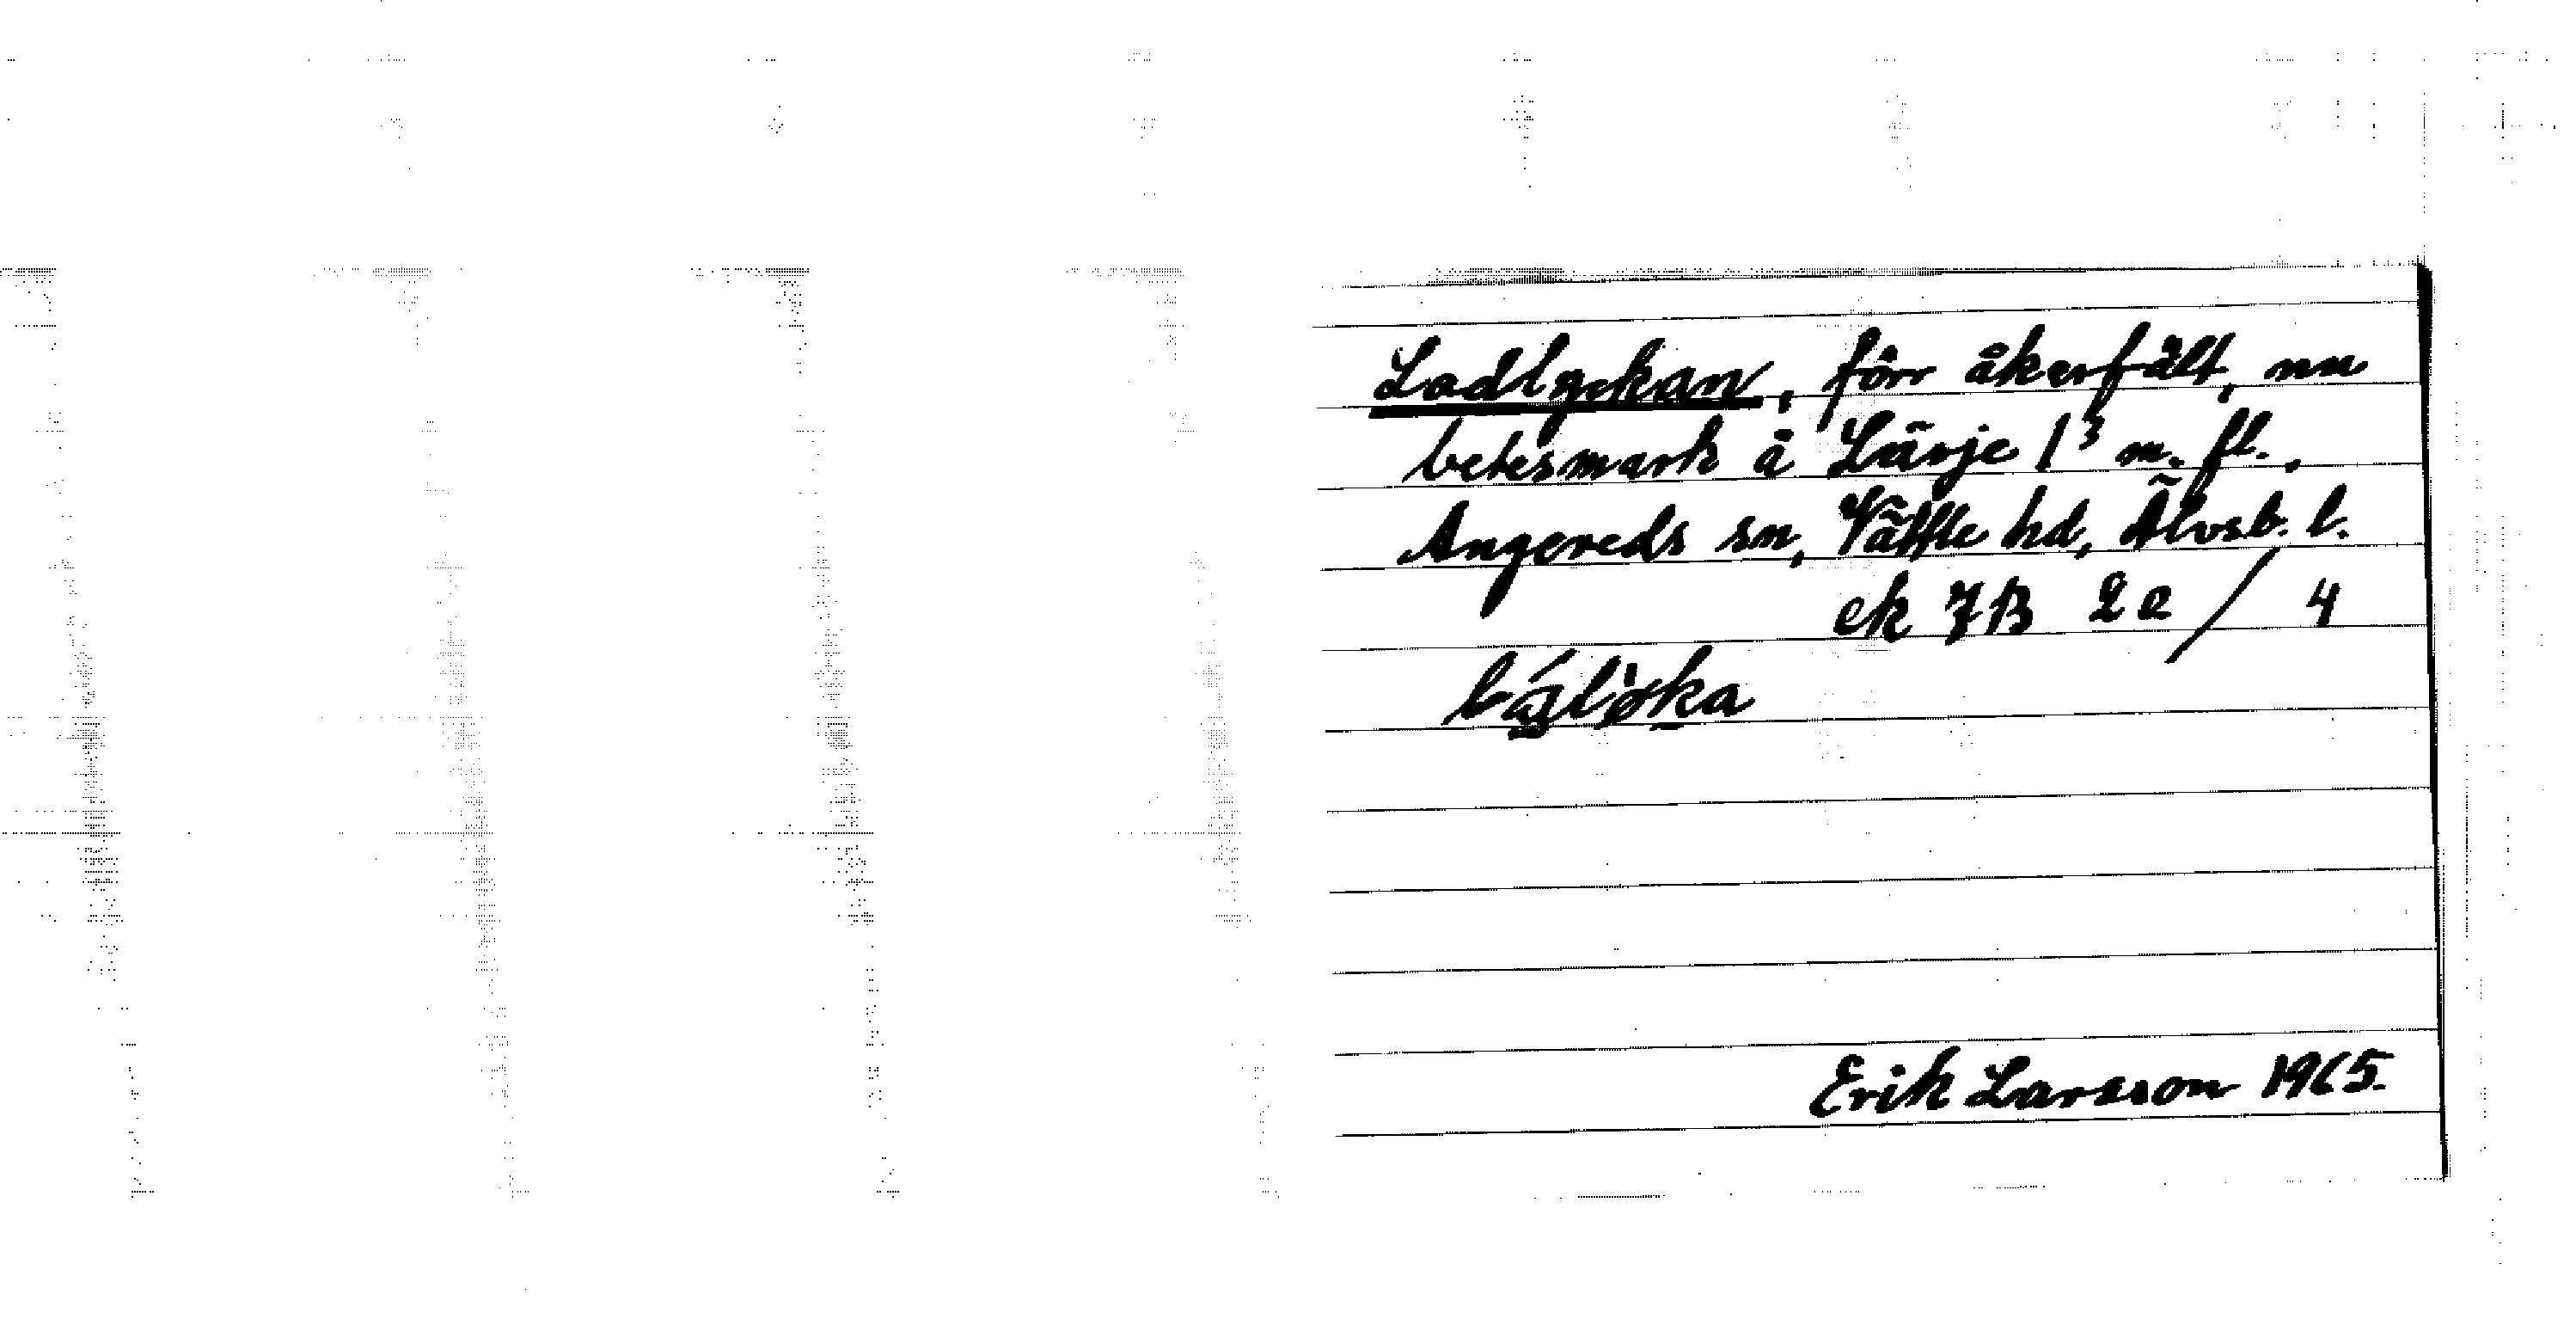 Ladlyckan, förr åkerfält, nu
betesmark å Lärje 1³ m. fl.,
Angereds sn, Vättle hd, Älvsb. l.
ek 7B 2e / 4
Erik Larsson 1965.